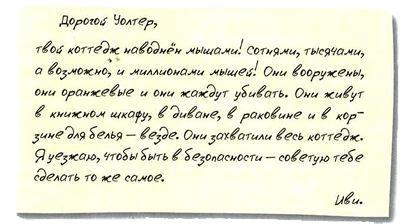 Дорогой Уолтер,
твой коттедж наводнён мышами! Сотнями, тысячами,
а возможно, и миллионами мышей! Они вооружены,
они оранжевые и они жаждут убивать. Они живут
в книжном шкафу, в диване, в раковине и в кор-
зине для белья — везде. Они захватили весь коттедж.
Я уезжаю, чтобы быть в безопасности — советую тебе
сделать то же самое.
Иви.